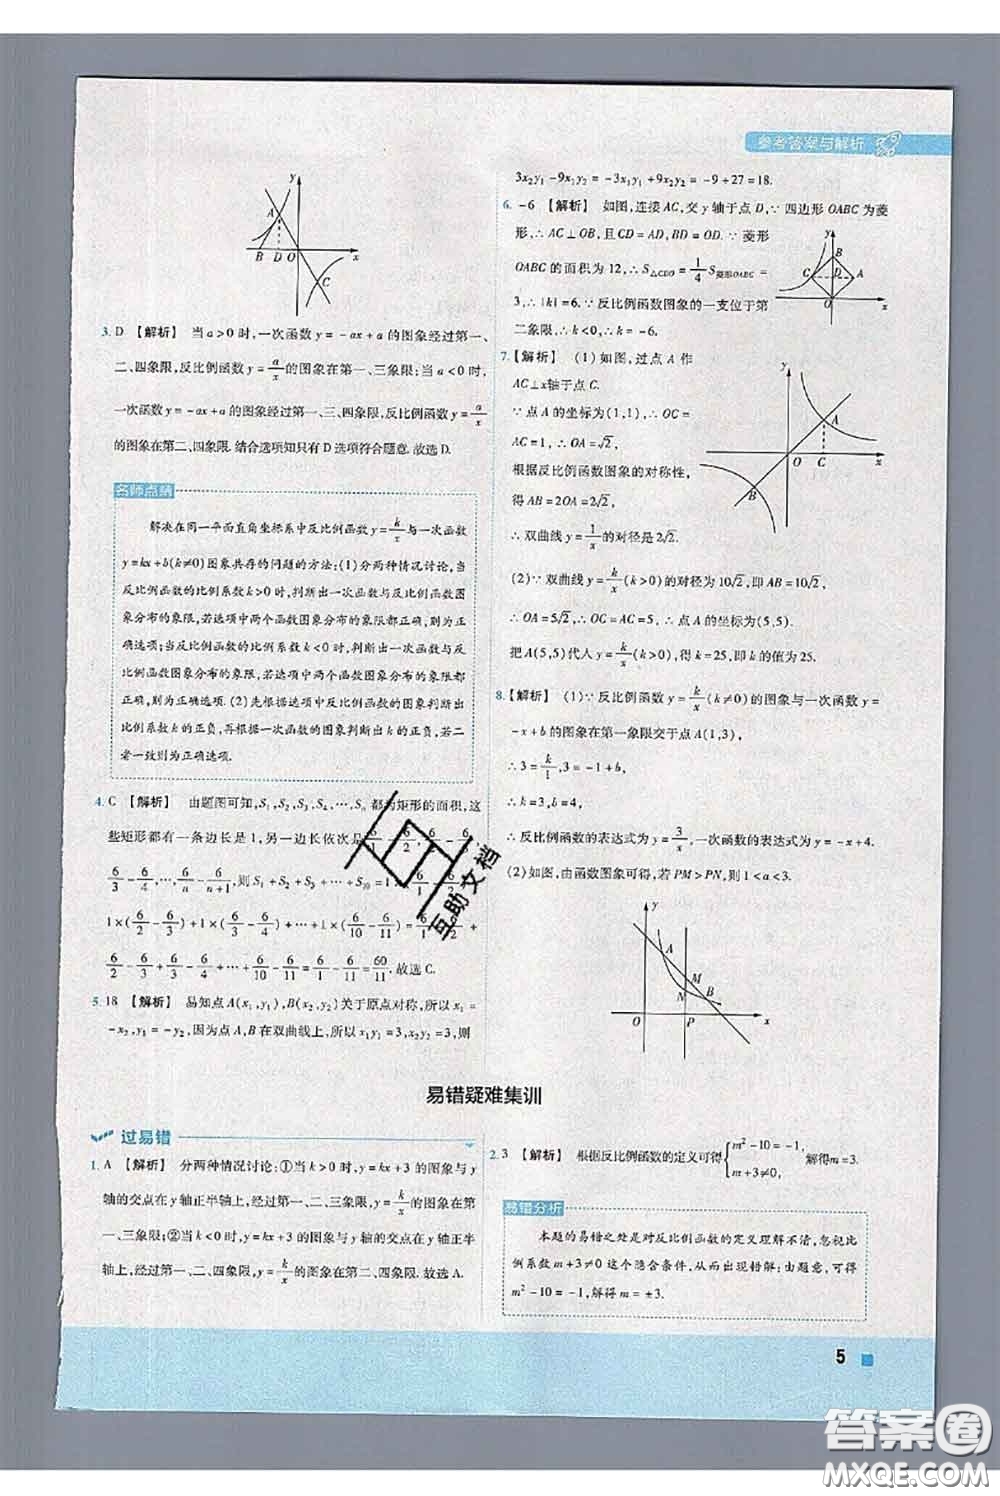 参考答案与解析
y
A
B D O x
C
3. D 【解析】 当 a>0 时,一次函数 y = -ax+a 的图象经过第一、
二、四象限,反比例函数 y = a/x 的图象在第一、三象限;当 a<0 时,
一次函数 y = -ax+a 的图象经过第一、三、四象限,反比例函数 y = a/x
的图象在第二、四象限. 结合选项知只有 D 选项符合题意. 故选 D.
名师点睛
解决在同一平面直角坐标系中反比例函数 y = k/x 与一次函数
y = kx+b(k≠0)图象共存的问题的方法:(1)分两种情况讨论,当
反比例函数的比例系数 k>0 时,判断出一次函数与反比例函数图
象分布的象限,若选项中两个函数图象分布的象限都正确,则为
正确选项;当反比例函数的比例系数 k<0 时,判断出一次函数与反
比例函数图象分布的象限,若选项中两个函数图象分布的象限都
正确,则为正确选项. (2)先根据选项中反比例函数的图象判断出
比例系数 k 的正负,再根据一次函数的图象判断出 k 的正负,若二
者一致则为正确选项.
4. C 【解析】 由题图可知, S₁, S₂, S₃, S₄, …, Sₙ 都为矩形的面积,这
些矩形都有一条边长是 1,另一边长依次是 6/1 - 6/2, 6/2 - 6/3,
6/3 - 6/4, …, 6/n - 6/(n+1), 则 S₁ + S₂ + S₃ + … + S₁₀ = 1×
1×(6/2 - 6/3) + 1×(6/3 - 6/4) + … + 1×(6/10 - 6/11) = 6/1 - 6/2 +
6/2 - 6/3 + 6/3 - 6/4 + … + 6/10 - 6/11 = 6/1 - 6/11 = 60/11. 故选 C.
5. 18 【解析】 易知点 A(x₁,y₁),B(x₂,y₂)关于原点对称,所以 x₁ =
-x₂,y₁ = -y₂,因为点 A,B 在双曲线上,所以 x₁y₁ = 3,x₂y₂ = 3,则
3x₂y₁ - 9x₁y₂ = -3x₁y₁ + 9x₂y₂ = -9+27 = 18.
6. -6 【解析】 如图,连接 AC,交 y 轴于点 D,∵ 四边形 OABC 为菱
形,∴ AC⊥OB,且 CD = AD,BD = OD. ∵ 菱形
OABC 的面积为 12,∴ S△CDO = 1/4 S菱形OABC =
3,∴ |k| = 6. ∵ 反比例函数图象的一支位于第
二象限,∴ k<0,∴ k = -6.
y
B
C D A
O x
7. 【解析】 (1)如图,过点 A 作
AC⊥x轴于点 C.
∵ 点 A 的坐标为(1,1),∴ OC =
AC = 1,∴ OA = √2,
根据反比例函数图象的对称性,
得 AB = 2OA = 2√2,
∴ 双曲线 y = 1/x 的对径是 2√2.
y
A
O C x
B
(2)∵ 双曲线 y = k/x (k>0)的对径为 10√2,即 AB = 10√2,
∴ OA = 5√2,∴ OC = AC = 5,∴ 点 A 的坐标为(5,5).
把 A(5,5)代入 y = k/x (k>0),得 k = 25,即 k 的值为 25.
8. 【解析】 (1)∵ 反比例函数 y = k/x (k≠0)的图象与一次函数 y =
-x+b 的图象在第一象限交于点 A(1,3),
∴ 3 = k/1,3 = -1+b,
∴ k = 3,b = 4,
∴ 反比例函数的表达式为 y = 3/x,一次函数的表达式为 y = -x+4.
(2)如图,由函数图象可得,若 PM>PN,则 1<a<3.
y
A
M
N B
O P x
易错疑难集训
过易错
1. A 【解析】 分两种情况讨论:①当 k>0 时,y = kx+3 的图象与 y
轴的交点在 y 轴正半轴上,经过第一、二、三象限,y = k/x 的图象在第
一、三象限;②当 k<0 时,y = kx+3 的图象与 y 轴的交点在 y 轴正半
轴上,经过第一、二、四象限,y = k/x 的图象在第二、四象限. 故选 A.
2. 3 【解析】 根据反比例函数的定义可得{m²-10 = -1, m+3≠0, 解得 m = 3.
易错分析
本题的易错之处是对反比例函数的定义理解不清,忽视比
例系数 m+3≠0 这个隐含条件,从而出现错解:由题意,可得
m²-10 = -1,解得 m = ±3.
5
互助文档
答案圈
MXQE.COM